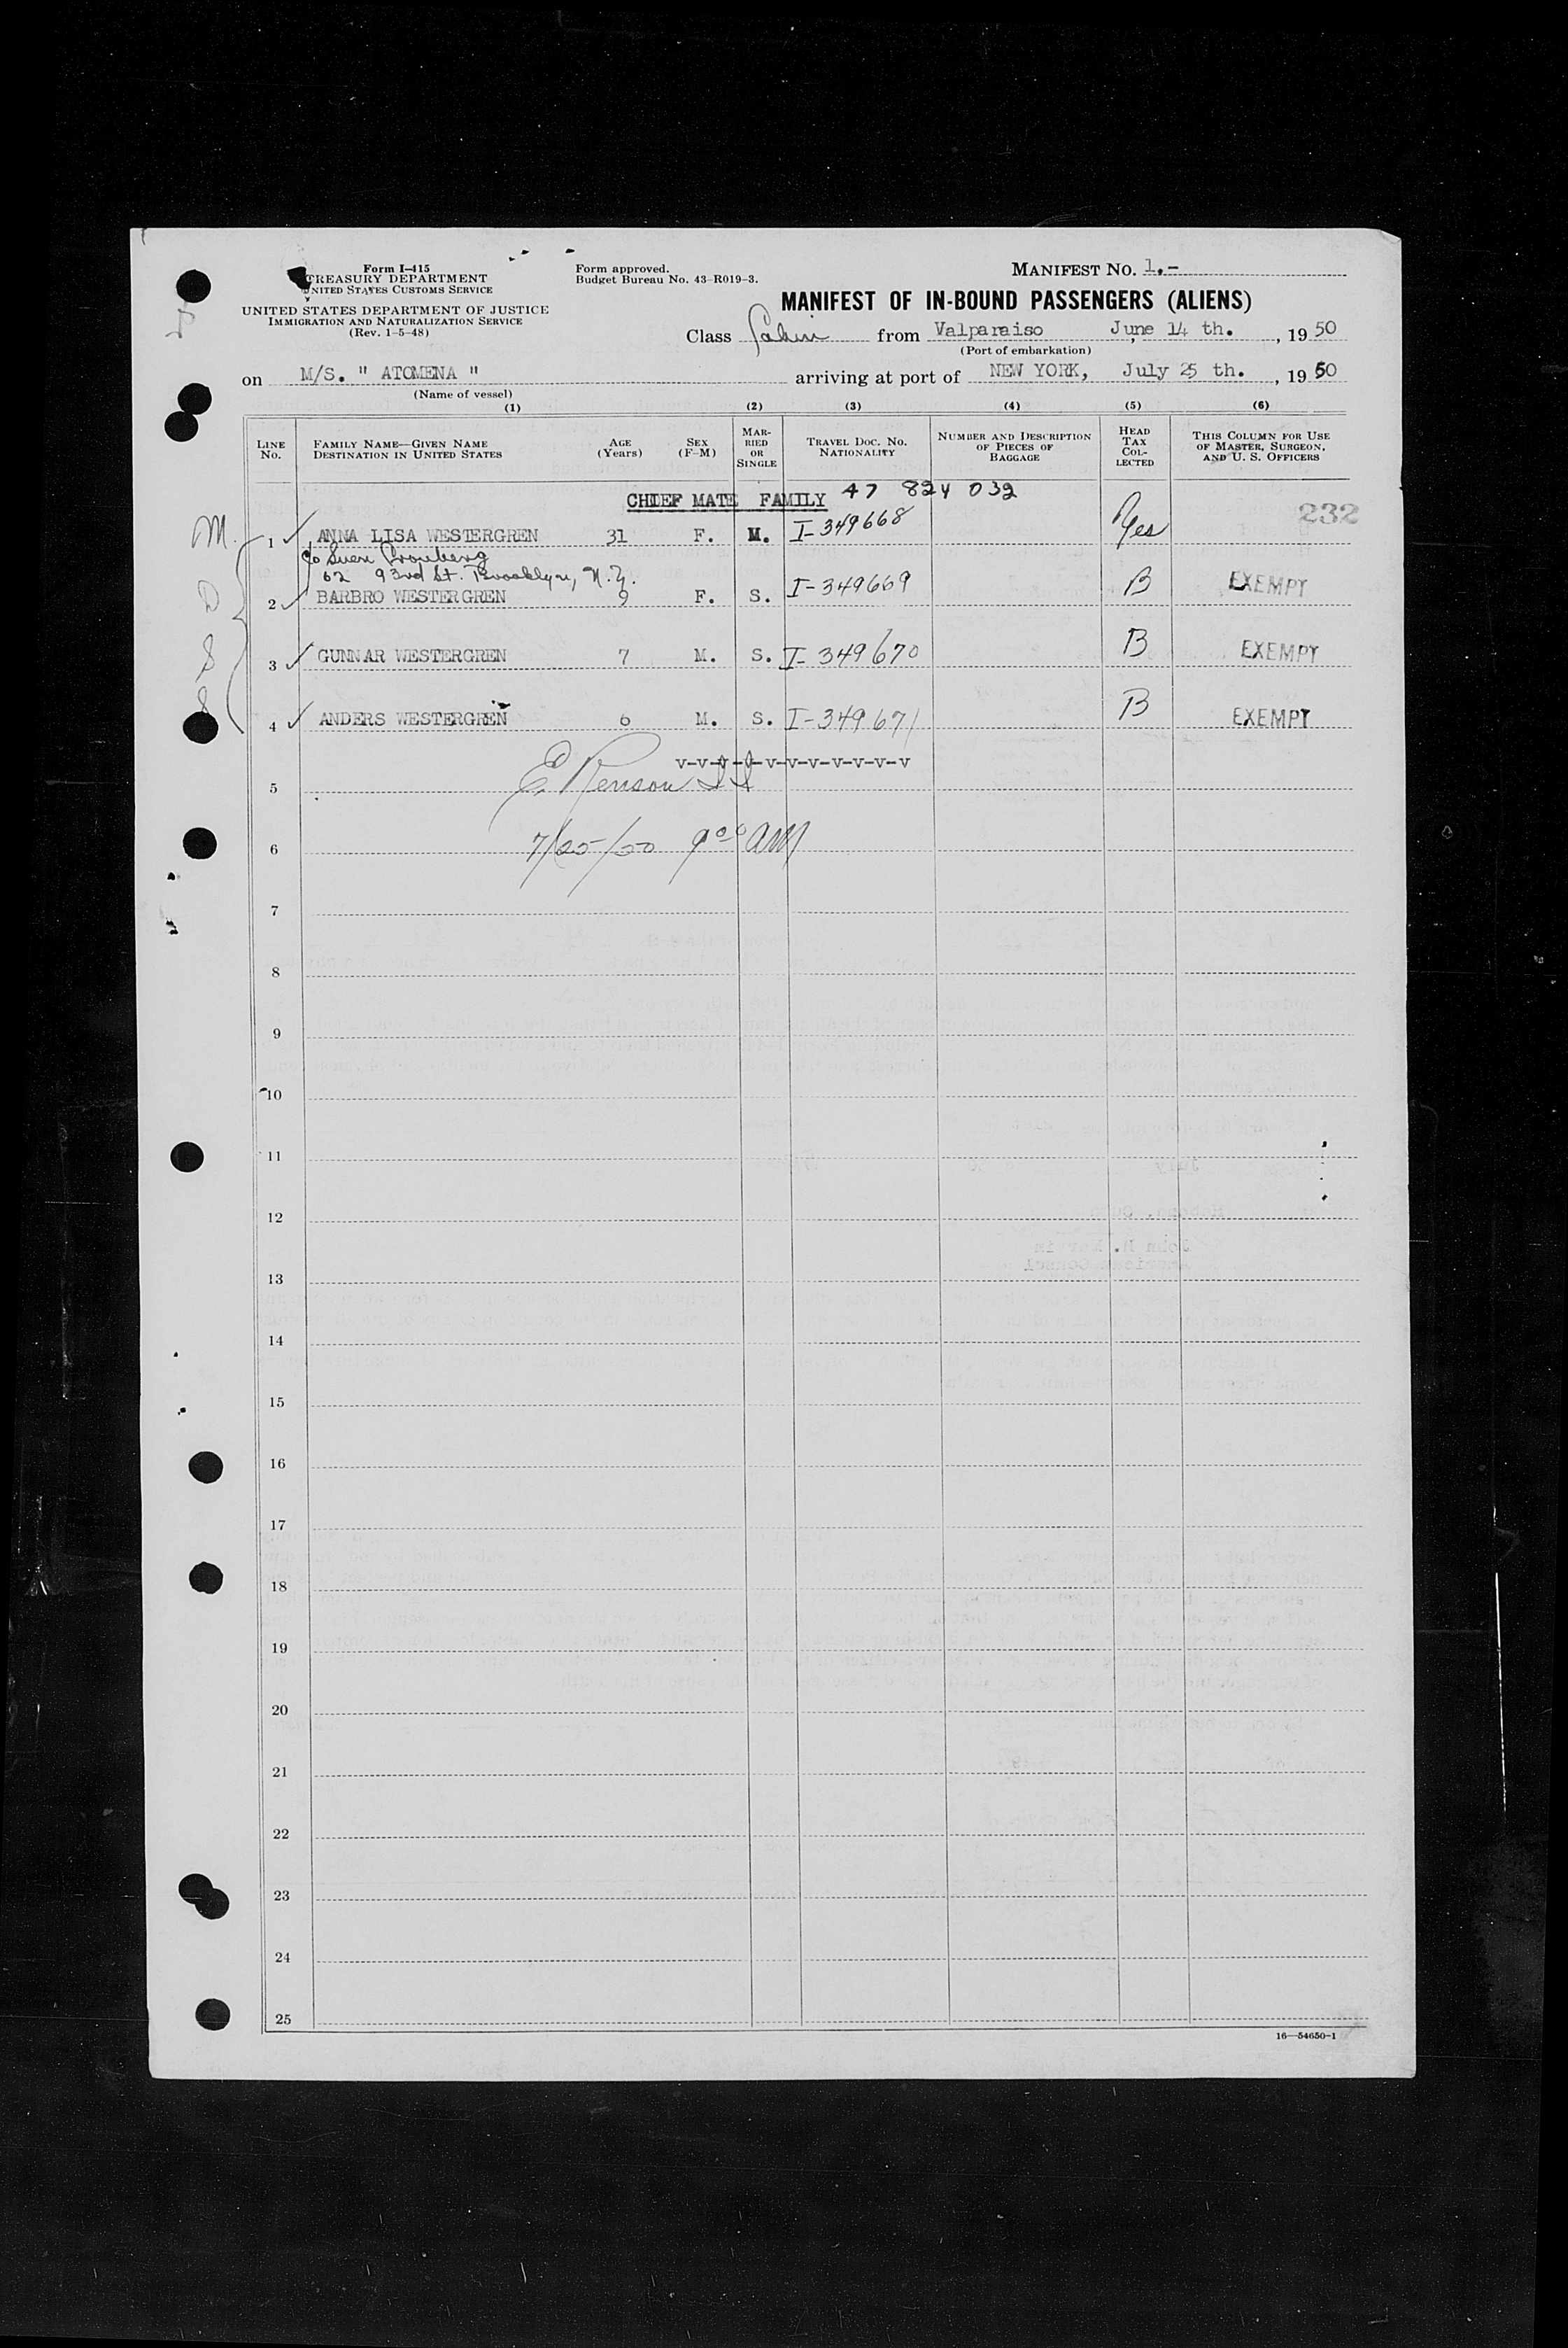 Form I-415
TREASURY DEPARTMENT
UNITED STATES CUSTOMS SERVICE
UNITED STATES DEPARTMENT OF JUSTICE
IMMIGRATION AND NATURALIZATION SERVICE
(Rev. 1-5-48)
Form approved.
Budget Bureau No. 43-R019-3.
MANIFEST NO. 1.-
MANIFEST OF IN-BOUND PASSENGERS (ALIENS)
Class Cabin from Valparaiso June 14 th., 1950
(Port of embarkation)
on M/S. " ATOMENA " arriving at port of NEW YORK, July 25 th., 1950
(Name of vessel)
(1) (2) (3) (4) (5) (6)
LINE NO. FAMILY NAME—GIVEN NAME DESTINATION IN UNITED STATES AGE (Years) SEX (F-M) MARRIED OR SINGLE TRAVEL DOC. NO. NATIONALITY NUMBER AND DESCRIPTION OF PIECES OF BAGGAGE HEAD TAX COLLECTED THIS COLUMN FOR USE OF MASTER, SURGEON, AND U. S. OFFICERS
CHIEF MATE FAMILY 47 824 032
232
M. 1 ✓ ANNA LISA WESTERGREN 31 F. M. I-349668 Yes
c/o Sven
62 93rd St. Brooklyn, N.Y.
D 2 ✓ BARBRO WESTERGREN 9 F. S. I-349669 B EXEMPT
S 3 ✓ GUNNAR WESTERGREN 7 M. S. I-349670 B EXEMPT
S 4 ✓ ANDERS WESTERGREN 6 M. S. I-349671 B EXEMPT
V-V-V-V-V-V-V-V-V-V-V
5 E. Renson
6 7/25/50 9:00 AM
7
8
9
10
11
12
13
14
15
16
17
18
19
20
21
22
23
24
25
16—54650-1